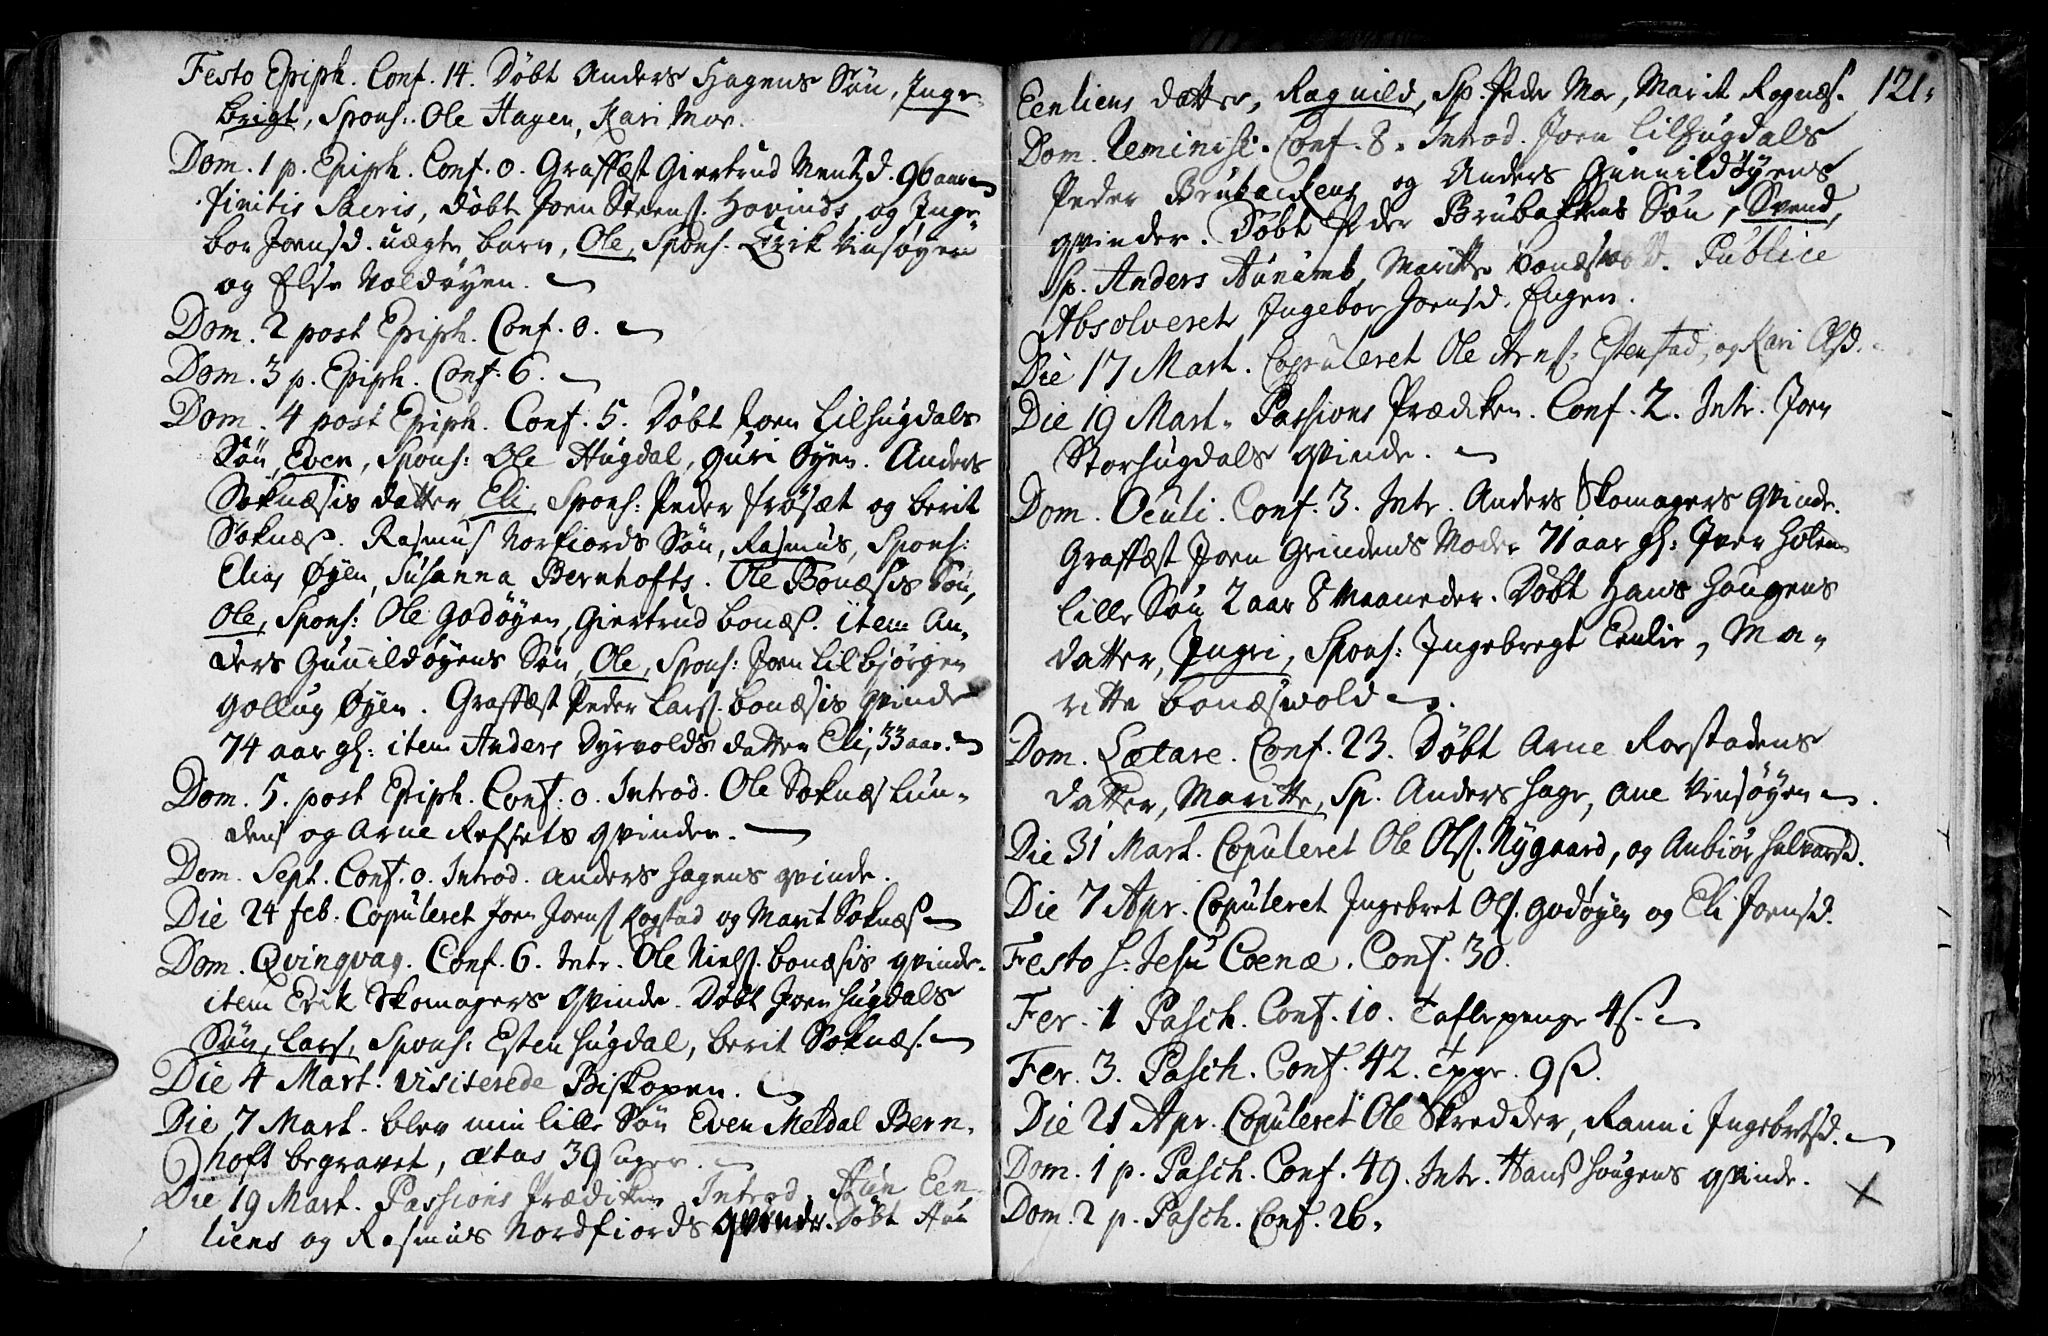 Festo Epiph. Conf. 14. Døbt Anders Hagens Søn, Inge-
brigt, Spons: Ole Hagen, Kari Moe.
Dom. 1 p. Epiph. Conf. 0. Graffæst Giertrud Mentzd. 96 aar
finitis Sacris, døbt Joen Steens. Hovinds, og Inge-
bor Joensd. uægte barn, Ole, Spons: Erik Vinsøyen
og Else Voldøyen.
Dom. 2 post Epiph. Conf. 0.
Dom. 3 p. Epiph. Conf. 6.
Dom. 4 post Epiph. Conf. 5. Døbt Joen Lilhugdals
Søn, Even, Spons: Ole Hugdal, Guri Øyen. Anders
Soknæsis datter Eli, Spons: Peder Frøsæt og Berit
Soknæs. Rasmus Norfiords Søn, Rasmus, Spons:
Elias Øyen, Susanna Bernhofts. Ole Bonæsis Søn,
Ole, Spons: Ole Godøyen, Giertrud Bonæs. item An-
ders Gunildøyens Søn, Ole, Spons: Joen Lilbjørgen
Gollug Øyen. Graffæst Peder Lars. Bonæsis Qvinde
74 aar gl: item Anders Dyrvolds datter Eli, 33 aar.
Dom. 5. post Epiph. Conf. 0. Introd. Ole Soknæs Lun-
dens og Arne Refsets qvinder.
Dom. Sept. Conf. 0. Introd. Anders Hagens qvinde.
Die 24 Feb. Copuleret Joen Joens Rogstad og Marit Soknæs
Dom. Qvinqvag. Conf. 6. Intr. Ole Niels. Bonæsis qvinde.
item Erik Skomagers Qvinde. Døbt Joen Hugdals
Søn, Lars, Spons: Esten Hugdal, Berit Soknæs.
Die 4 Mart. Visiterede Biskopen.
Die 7 Mart. blev min lille Søn Even Meldal Bern-
hoft begravet, ætas 39 uger.
Die 19 Mart. Passions Prædiken Introd. Aun Een-
liens og Rasmus Nordfiords qvinder. Døbt Aun
121.
Eenliens datter, Ragnild, Sp. Peder Moe, Marit Rognæs.
Dom. Reminisc. Conf. 8. Introd. Joen Lilhugdals
Peder Brubackens og Anders Gunildøyens
qvinder. Døbt Peder Brubackens Søn, Svend,
Sp. Anders Aunmb, Maritte Publice
Absolveret Ingebor Joensd. Engen.
Die 17 Mart. Copuleret Ole Arnss. Estenstad, og Kari Olsd.
Die 19 Mart. Passions Prædiken. Conf. 2. Intr. Joen
Storhugdals qvinde.
Dom. Oculi. Conf. 3. Intr. Anders Skomagers qvinde.
Graffæst Joen Grindens Moder 71 aar gl: Iver Holens
lille Søn 2 aar 8 Maaneder. Døbt Hans Hougens
datter, Ingri, Spons: Ingebregt Eenlie, Ma-
ritte Bonæswold.
Dom. Lætare. Conf. 23. Døbt Arne Rorstadens
datter, Maritte, Sp. Anders Hage, Ane Vinsøyen.
Die 31 Mart. Copuleret Ole Ols. Nygaard, og Anbiør Halvorsd.
Die 7 Apr. Copuleret Ingebret Ols. Godøyen og Eli Joensd.
Festo S: Jesu Coenæ. Conf. 30.
Fer. 1 Pasch. Conf. 10. Taflepenge 4ß.
Fer. 3. Pasch. Conf. 42. Tpge. 9ß.
Die 21 Apr. Copuleret Ole Skredder, Ranni Ingebretsd.
Dom. 1 p. Pasch. Conf. 49. Intr. Hans Hougens qvinde.
Dom. 2 p. Pasch. Conf. 26.